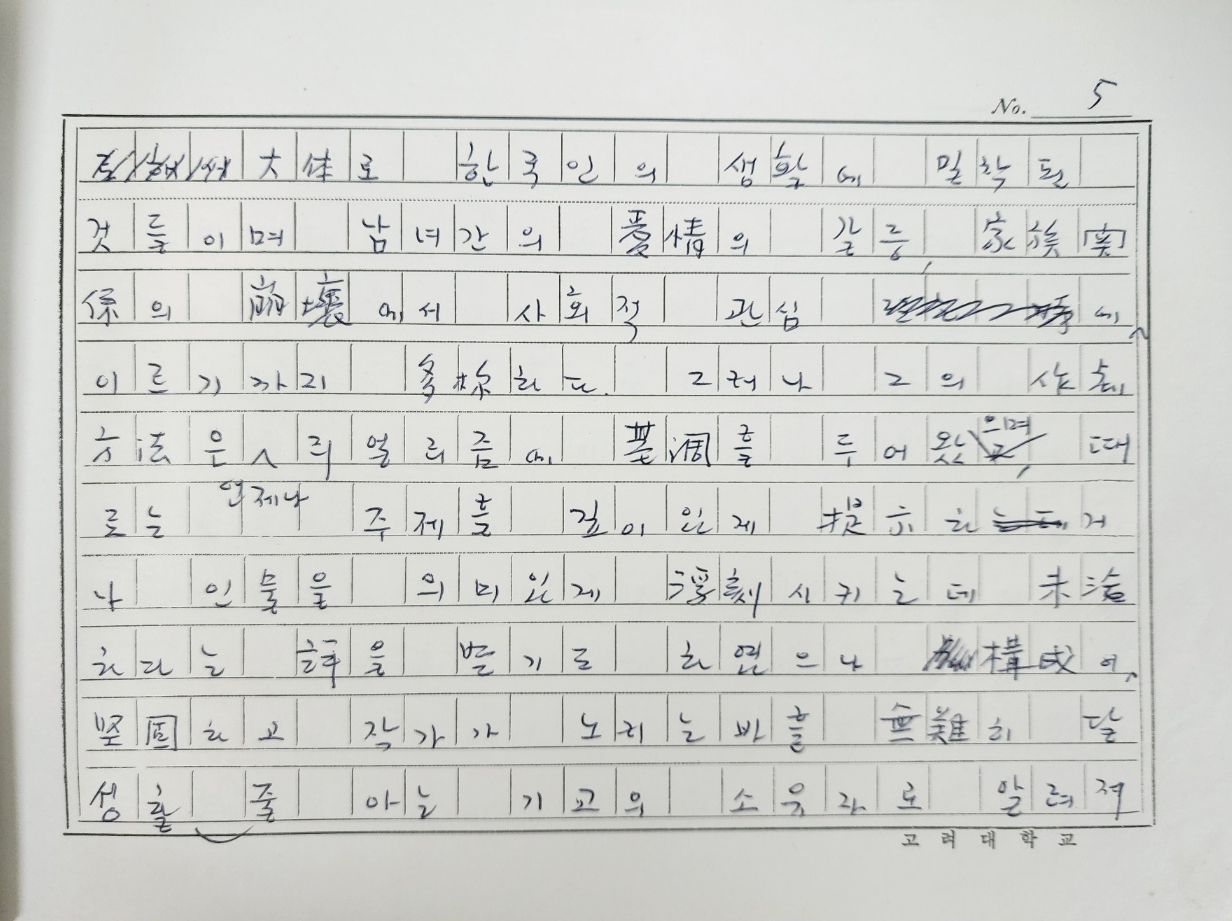 No. 5
大体로 한국인의 생활에 밀착된
것들이며 남녀간의 愛情의 갈등, 家族関
係의 崩壞에서 사회적 관심에
이르기까지 多樣하다. 그러나 그의 作品
方法은 리얼리즘에 基调를 두어 왔으며, 때
로는 언제나 주제를 깊이있게 提示하거
나 인물을 의미있게 浮刻시키는데 未洽
하다는 評을 받기도 하였으나 構成이
堅固하고 작가가 노리는 바를 無難히 달
성할 줄 아는 기교의 소유자로 알려져
고려대학교